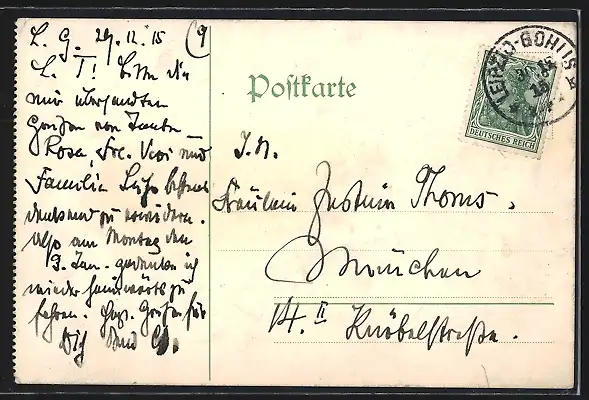 L. G. 29.12.15 (9
L. T! Bitte die
mir übersandten
Grüßen von Tante
Rosa, Frl. Vroi und
Familie bestens
dankend zu erwidern.
Also am Montag den
9. Jan. gedenke ich
wieder heimwärts zu
fahren. Hrzl. Grüße für
Dich
Postkarte
LEIPZIG-GOHLIS
DEUTSCHES REICH
I. H.
Fräulein Justein Thoms.
München
14. II Knöbelstraße.